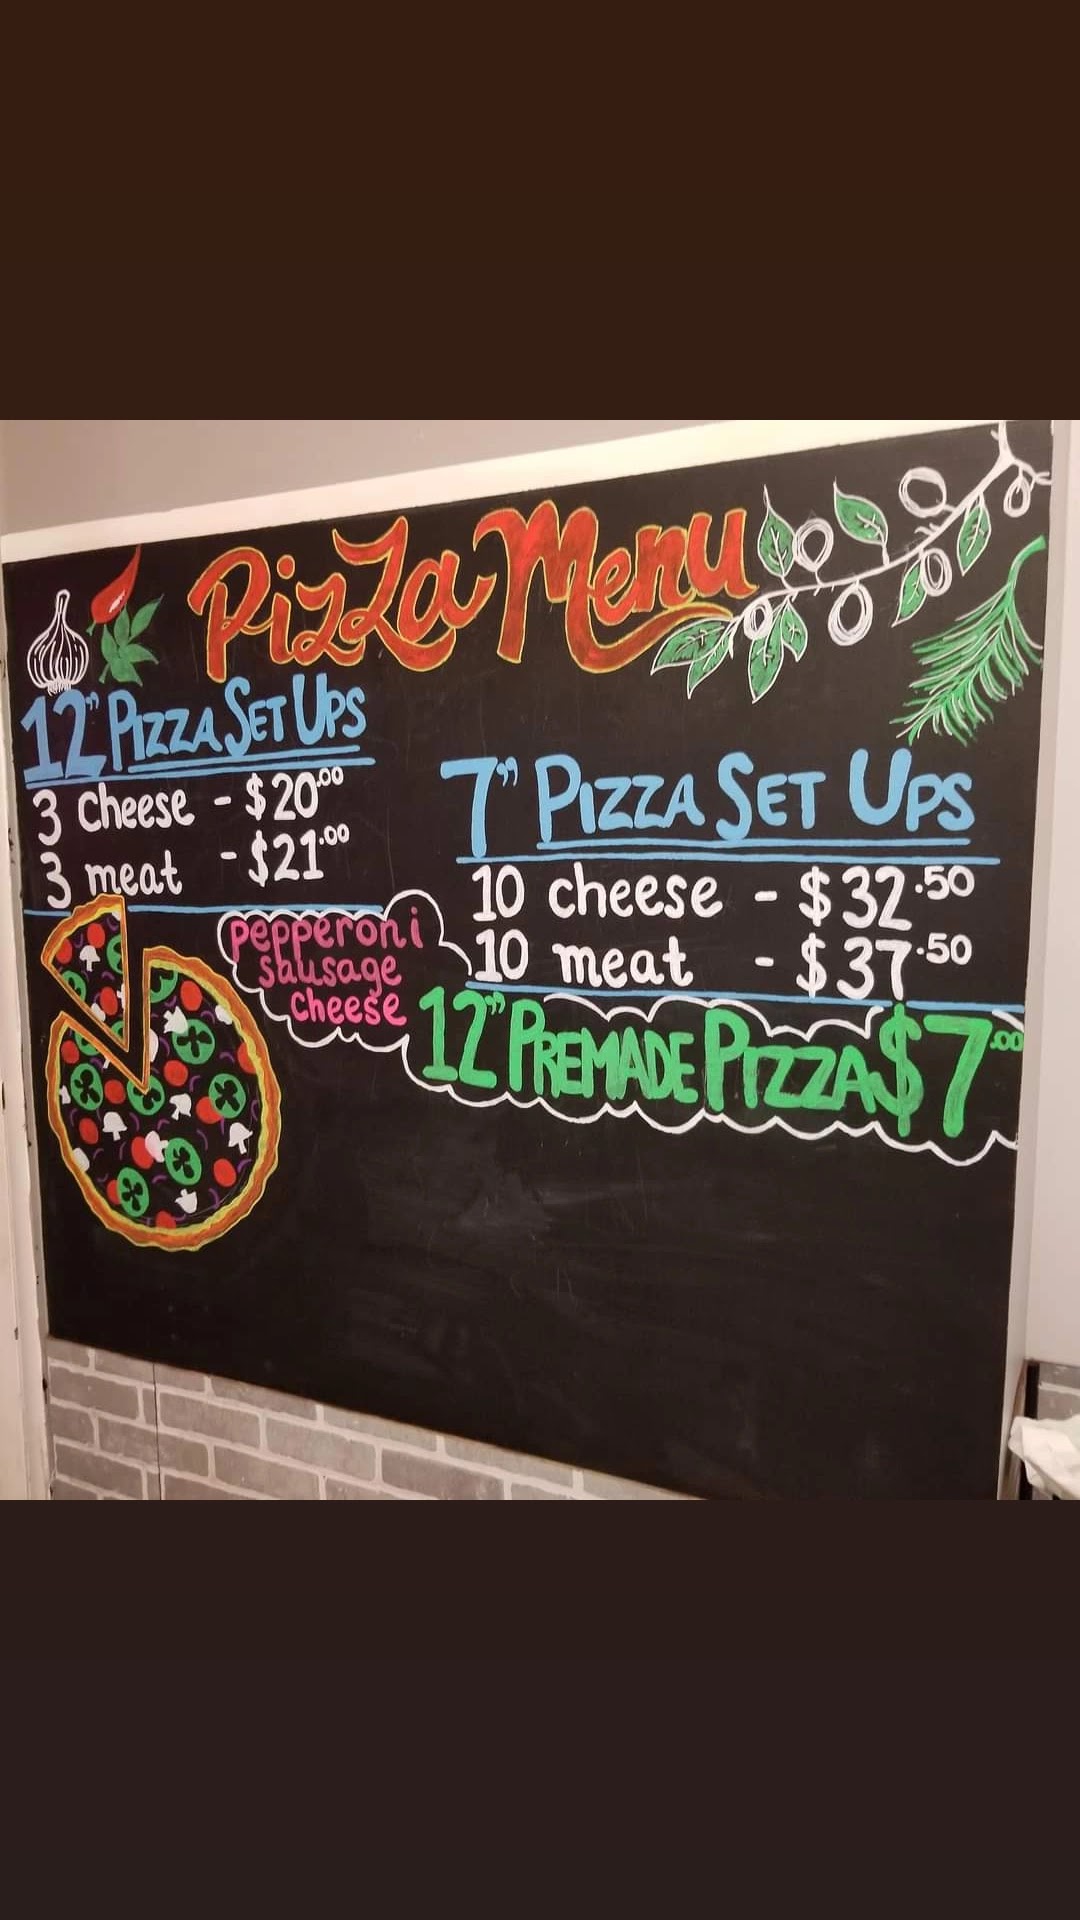 Pizza Menu
12" Pizza Set Ups
3 cheese - $20.00
3 meat - $21.00
7" Pizza Set Ups
10 cheese - $32.50
10 meat - $37.50
pepperoni
sausage
cheese
12" Premade Pizza $7.00